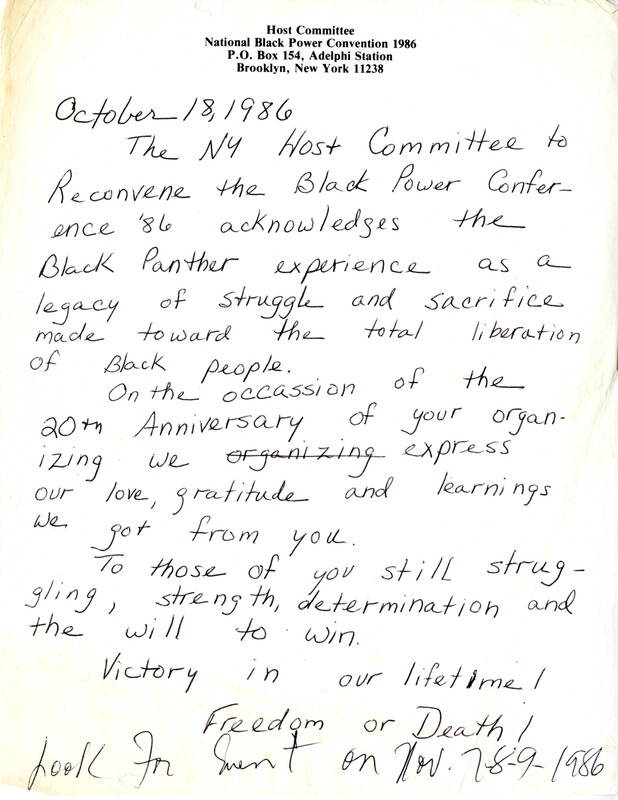 Host Committee
National Black Power Convention 1986
P.O. Box 154, Adelphi Station
Brooklyn, New York 11238
October 18, 1986
The NY Host Committee to
Reconvene the Black Power Confer-
ence '86 acknowledges the
Black Panther experience as a
legacy of struggle and sacrifice
made toward the total liberation
of Black people.
On the occassion of the
20th Anniversary of your organ-
izing we organizing express
our love, gratitude and learnings
we got from you.
To those of you still strug-
gling, strength, determination and
the will to win.
Victory in our lifetime!
Freedom or Death!
Look For Event on Nov. 7-8-9-1986